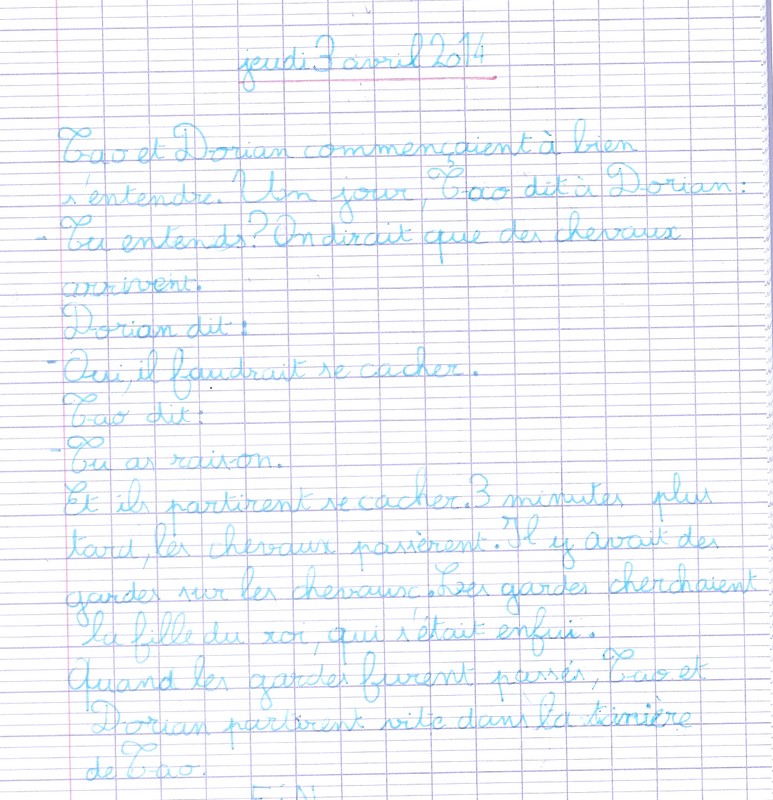 jeudi 3 avril 2014
Tao et Dorian commençaient à bien
s'entendre. Un jour, Tao dit à Dorian :
- Tu entends ? On dirait que des chevaux
arrivent.
Dorian dit :
- Oui, il faudrait se cacher.
Tao dit :
- Tu as raison.
Et ils partirent se cacher. 3 minutes plus
tard, les chevaux passèrent. Il y avait des
gardes sur les chevaux. Les gardes cherchaient
la fille du roi, qui s'était enfui.
Quand les gardes furent passés, Tao et
Dorian partirent vite dans la tanière
de Tao.
FIN